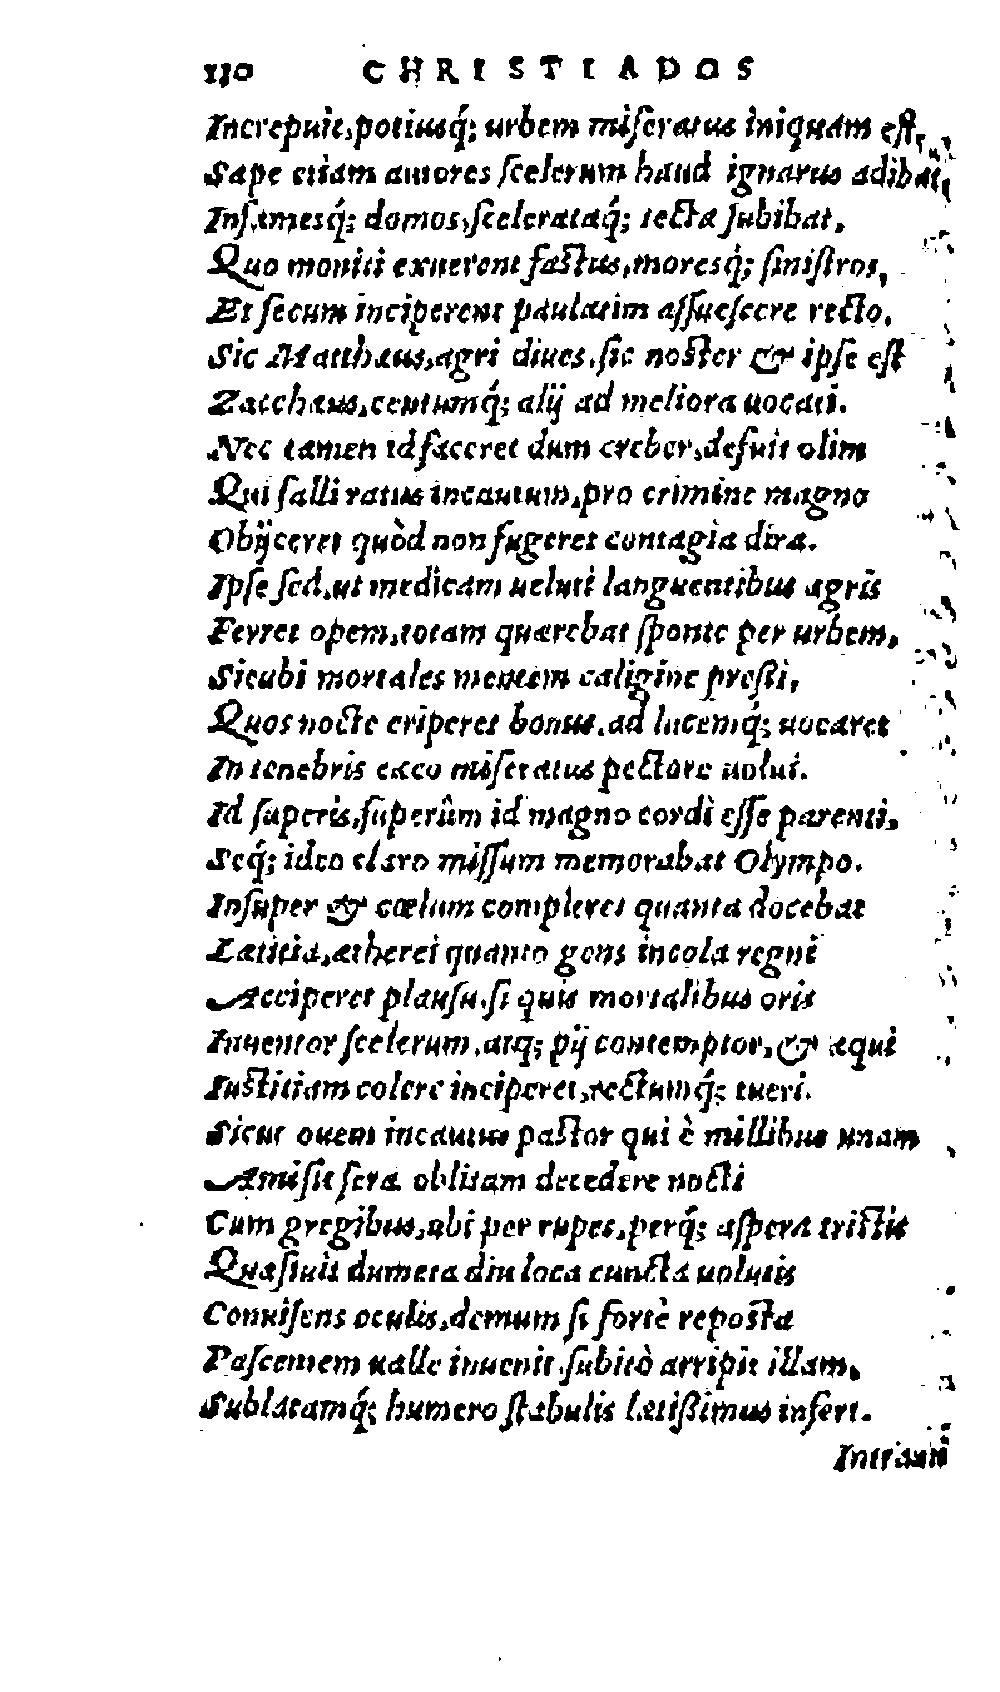 130 CHRISTIADOS
Increpuit, potiusq́; urbem miseratus iniquam est,
Sæpe etiam autores scelerum haud ignarus adibat,
Infamesq́; domos, scelerataq́; tecta subibat,
Quo moniti exuerent fastus, moresq́; sinistros,
Et secum inciperent paulatim assuescere recto.
Sic Matthæus, agri diues, sic noster & ipse est
Zacchæus, centumq́; alij ad meliora uocati.
Nec tamen id faceret dum creber, defuit olim
Qui falli ratus incautum, pro crimine magno
Obijceret quòd non fugeret contagia dira.
Ipse sed, ut medicam ueluti languentibus ægris
Ferret opem, totam quærebat sponte per urbem,
Sicubi mortales mentem caligine pressi,
Quos nocte eriperet bonus, ad lucemq́; uocaret
In tenebris cæco miseratus pectore uolui.
Id superis, superûm id magno cordi esse parenti,
Seq́; ideo claro missum memorabat Olympo.
Insuper & cœlum compleret quanta docebat
Lætitia, ætherei quanto gens incola regni
Acciperet plausu, si quis mortalibus oris
Inuentor scelerum, atq; pij contemptor, & æqui
Iustitiam colere inciperet, rectumq́; tueri.
Sicut ouem incautus pastor qui è millibus unam
Amisit seræ oblitam decedere nocti
Cum gregibus, ubi per rupes, perq́; aspera tristis
Quæsiuit dumeta diu loca cuncta uolutis
Conuisens oculis, demum si fortè reposta
Pascentem ualle inuenit, subitò arripit illam,
Sublatamq́; humero stabulis lætissimus infert.